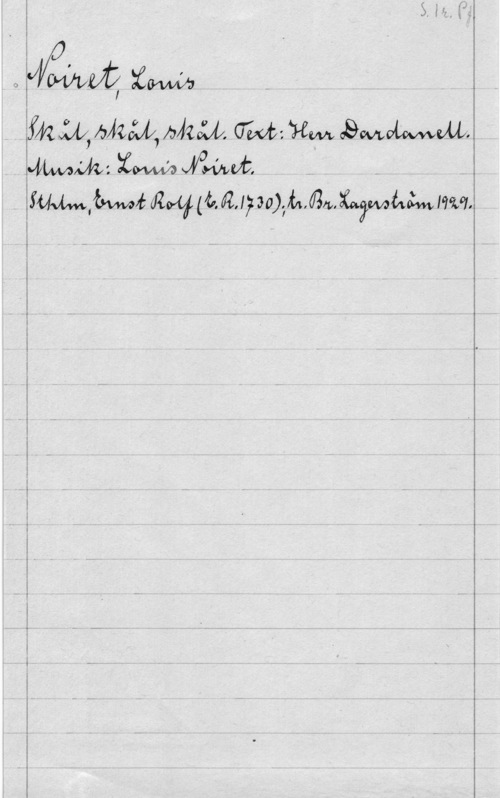 S. 1 r. Pf.
Noiret, Louis
Skål, skål, skål. Text: Herr Dardanell.
Musik: Louis Noiret.
Sthlm, Ernst Rolf (E.R. 1730); tr. Br. Lagerström 1929.